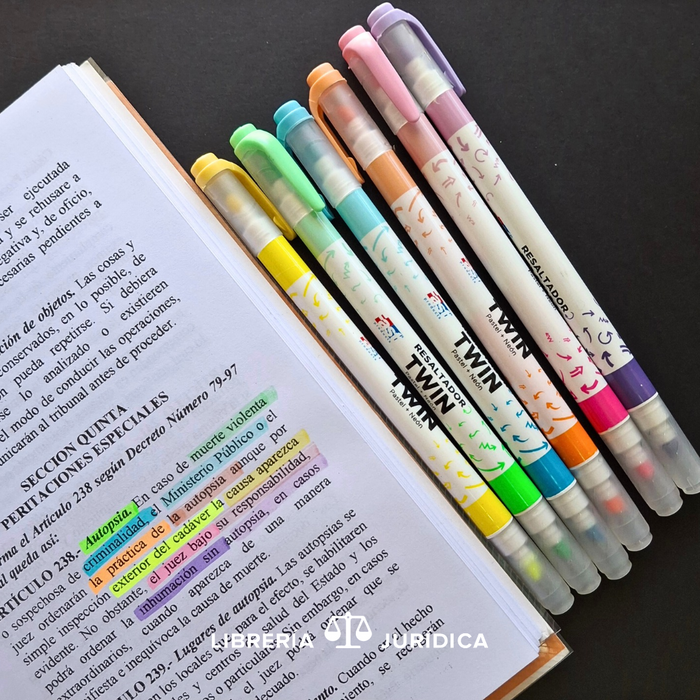 ser ejecutada
y se rehusare a
negativa y, de oficio,
cesarias pendientes a
ción de objetos. Las cosas y
conservados, en lo posible, de
pueda repetirse. Si debiera
se lo analizado o existieren
el modo de conducir las operaciones,
nicarán al tribunal antes de proceder.
SECCION QUINTA
PERITACIONES ESPECIALES
rma el Artículo 238 según Decreto Número 79-97
al queda así:
ARTICULO 238.- Autopsia. En caso de muerte violenta
o sospechosa de criminalidad, el Ministerio Público o el
juez ordenarán la práctica de la autopsia aunque por
simple inspección exterior del cadáver la causa aparezca
evidente. No obstante, el juez bajo su responsabilidad,
podrá ordenar la inhumación sin autopsia, en casos
extraordinarios, cuando aparezca de una manera
manifiesta e inequívoca la causa de muerte.
ULO 239.- Lugares de autopsia. Las autopsias se
en los locales que para el efecto, se habilitaren
y centros de salud del Estado y los
o particulares. Sin embargo, en casos
el juez podrá que se
adecuado.
Cuando el hecho
se requerirán
RESALTADOR
TWIN
TWIN
Pastel + Neón
TWIN
Pastel + Neón
TWIN
Pastel + Neón
RESALTADOR
LIBRERIA JURÍDICA